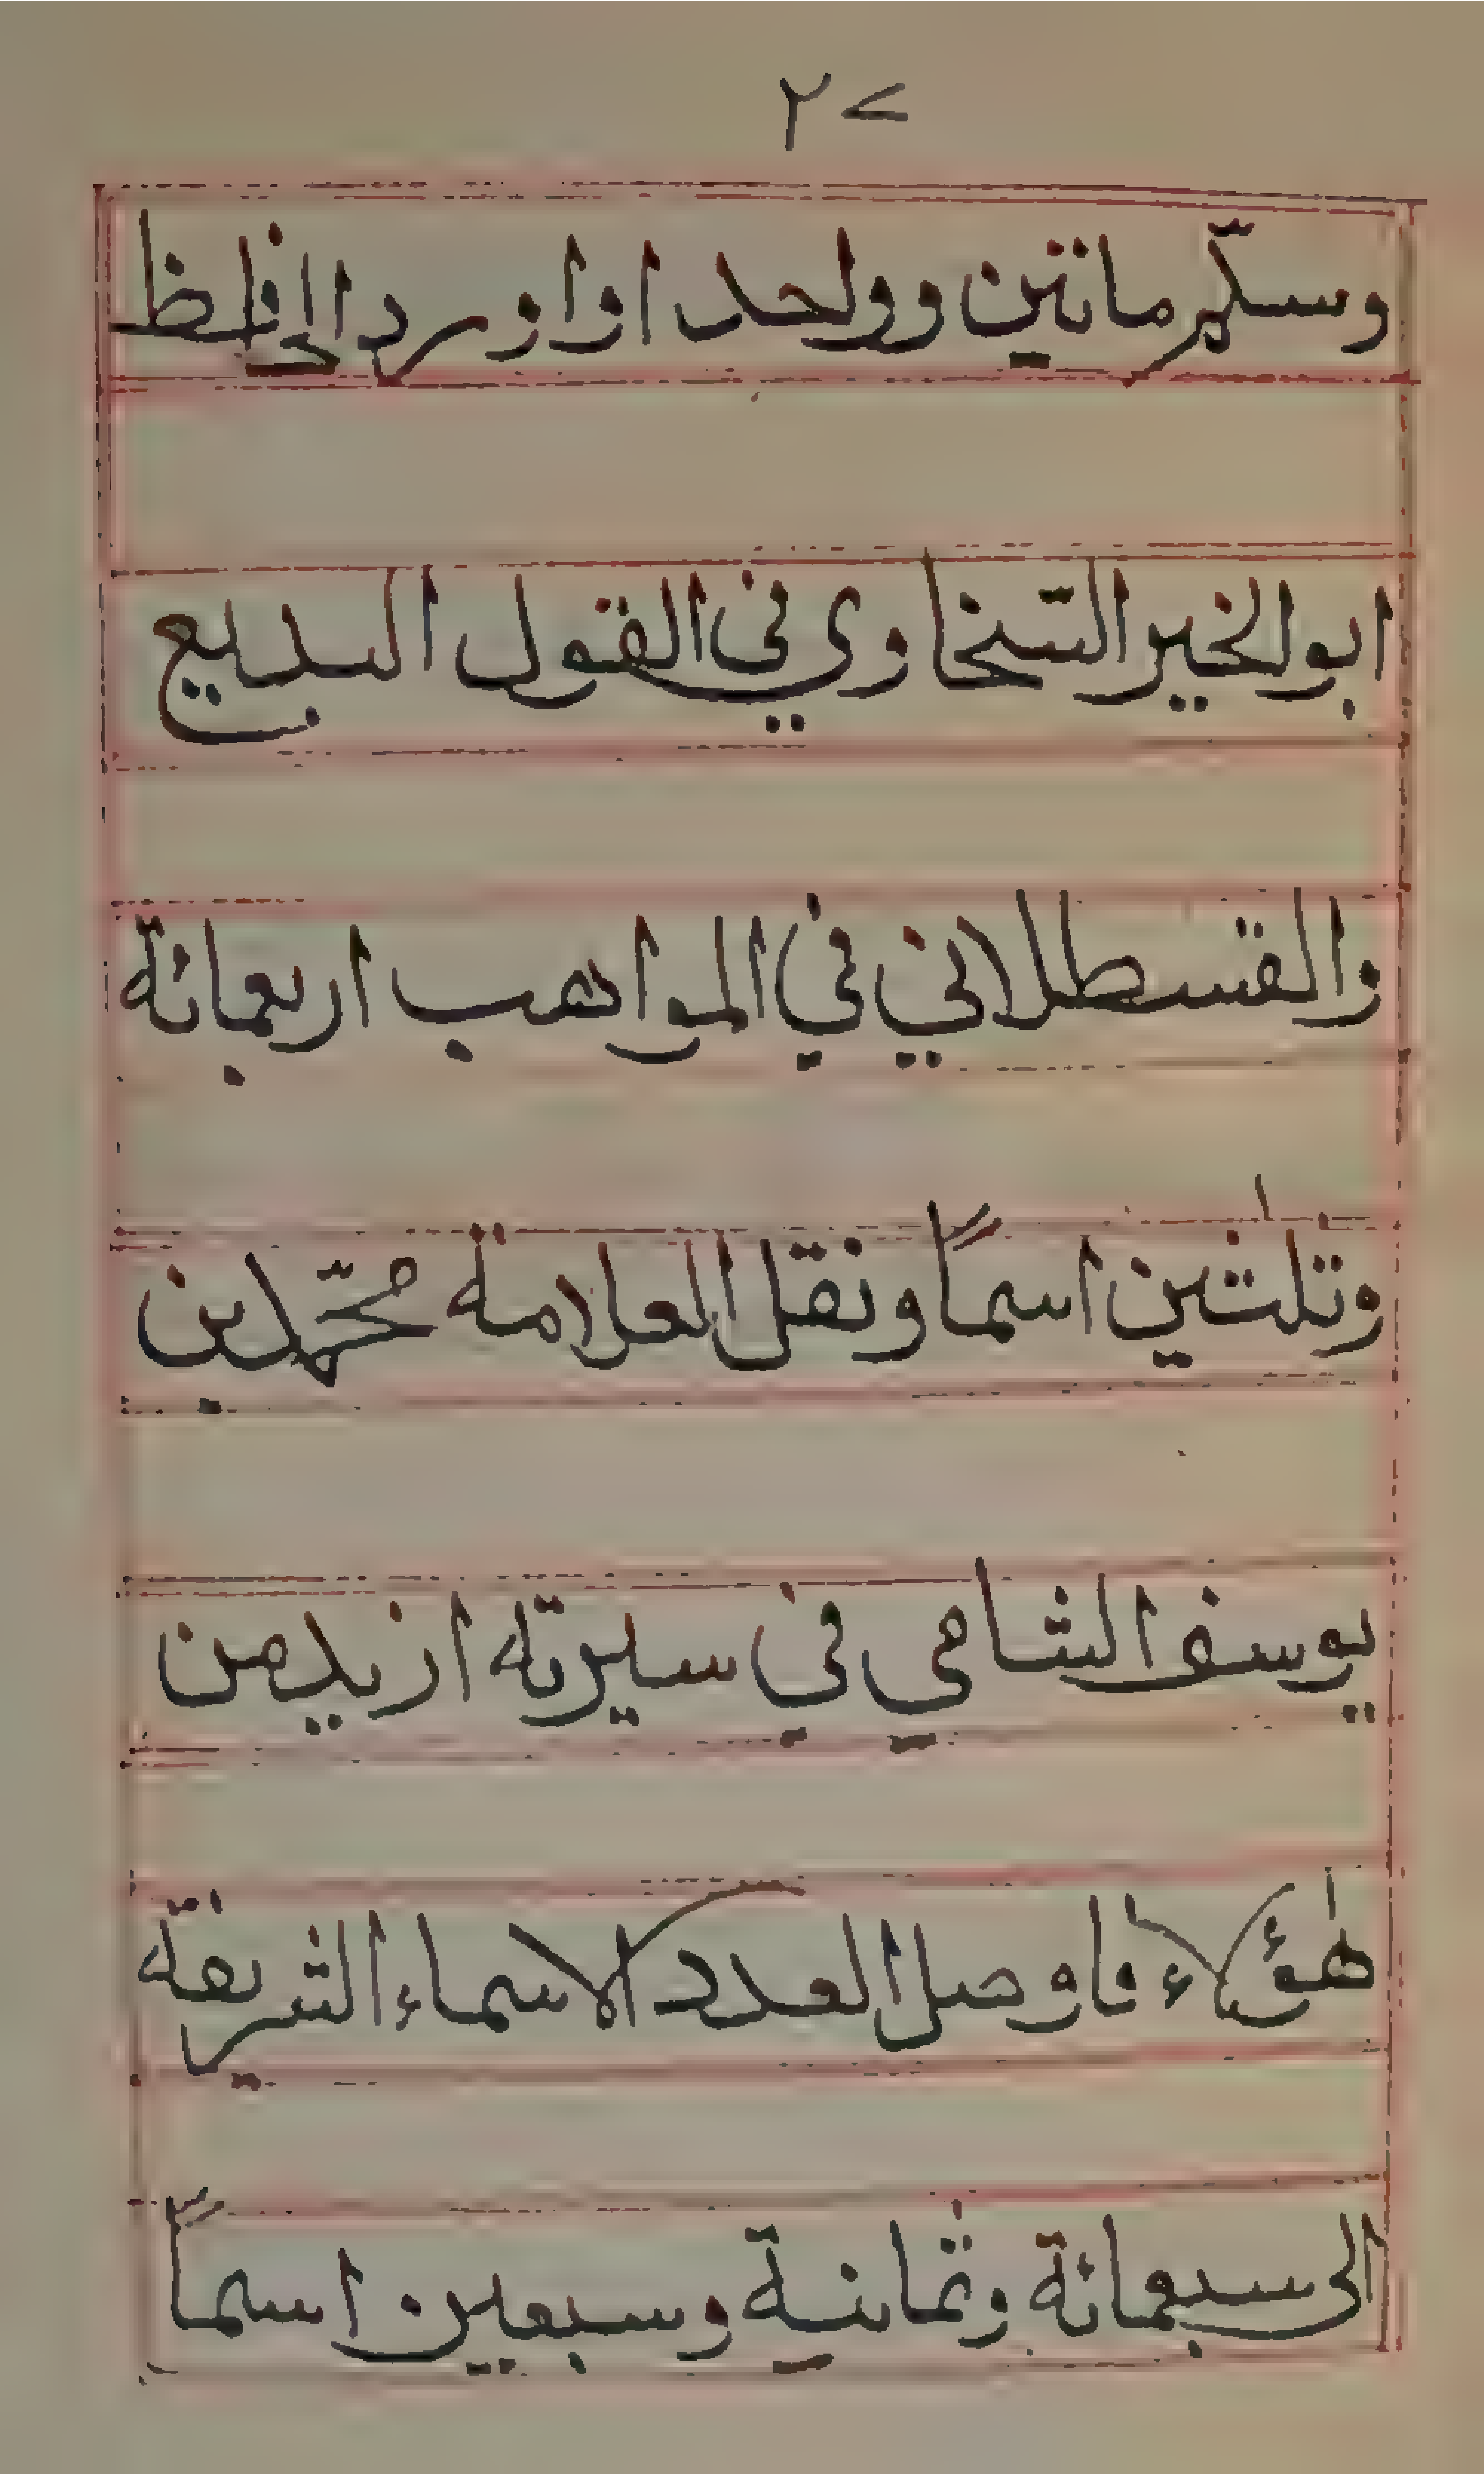 ٢٧
وسلّم مائتين وولحد اواورد الحافظ
ابوالخير السّخاوي في القول البديع
والقسطلاني في المواهب اربعمائة
وثلثين اسمًا ونقل العلامة محمّد بن
يوسف الشامي في سيرته ازيد من
هٰؤلاء فاوصل العدد الاسماء الشريفة
الى سبعمائة وثمانية وسبعين اسمًا